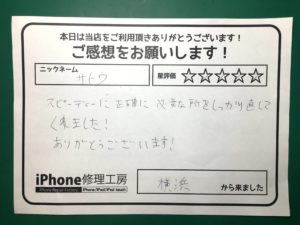 本日は当店をご利用頂きありがとうございます!
ご感想をお願いします!
ニックネーム
サトウ
星評価 ☆☆☆☆☆
スピーディーに正確に 必要な所をしっかり直して
くれました!
ありがとうございます!
iPhone修理工房
iPhone Repair Factory
iPhone/iPad/iPod touch
横浜
から来ました